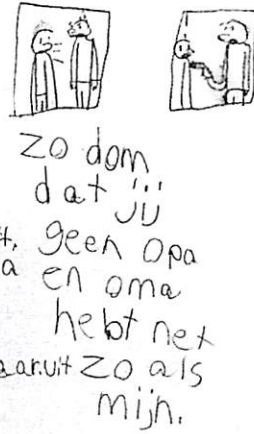 zo dom
dat jij
geen opa
en oma
hebt net
zo als
mijn.